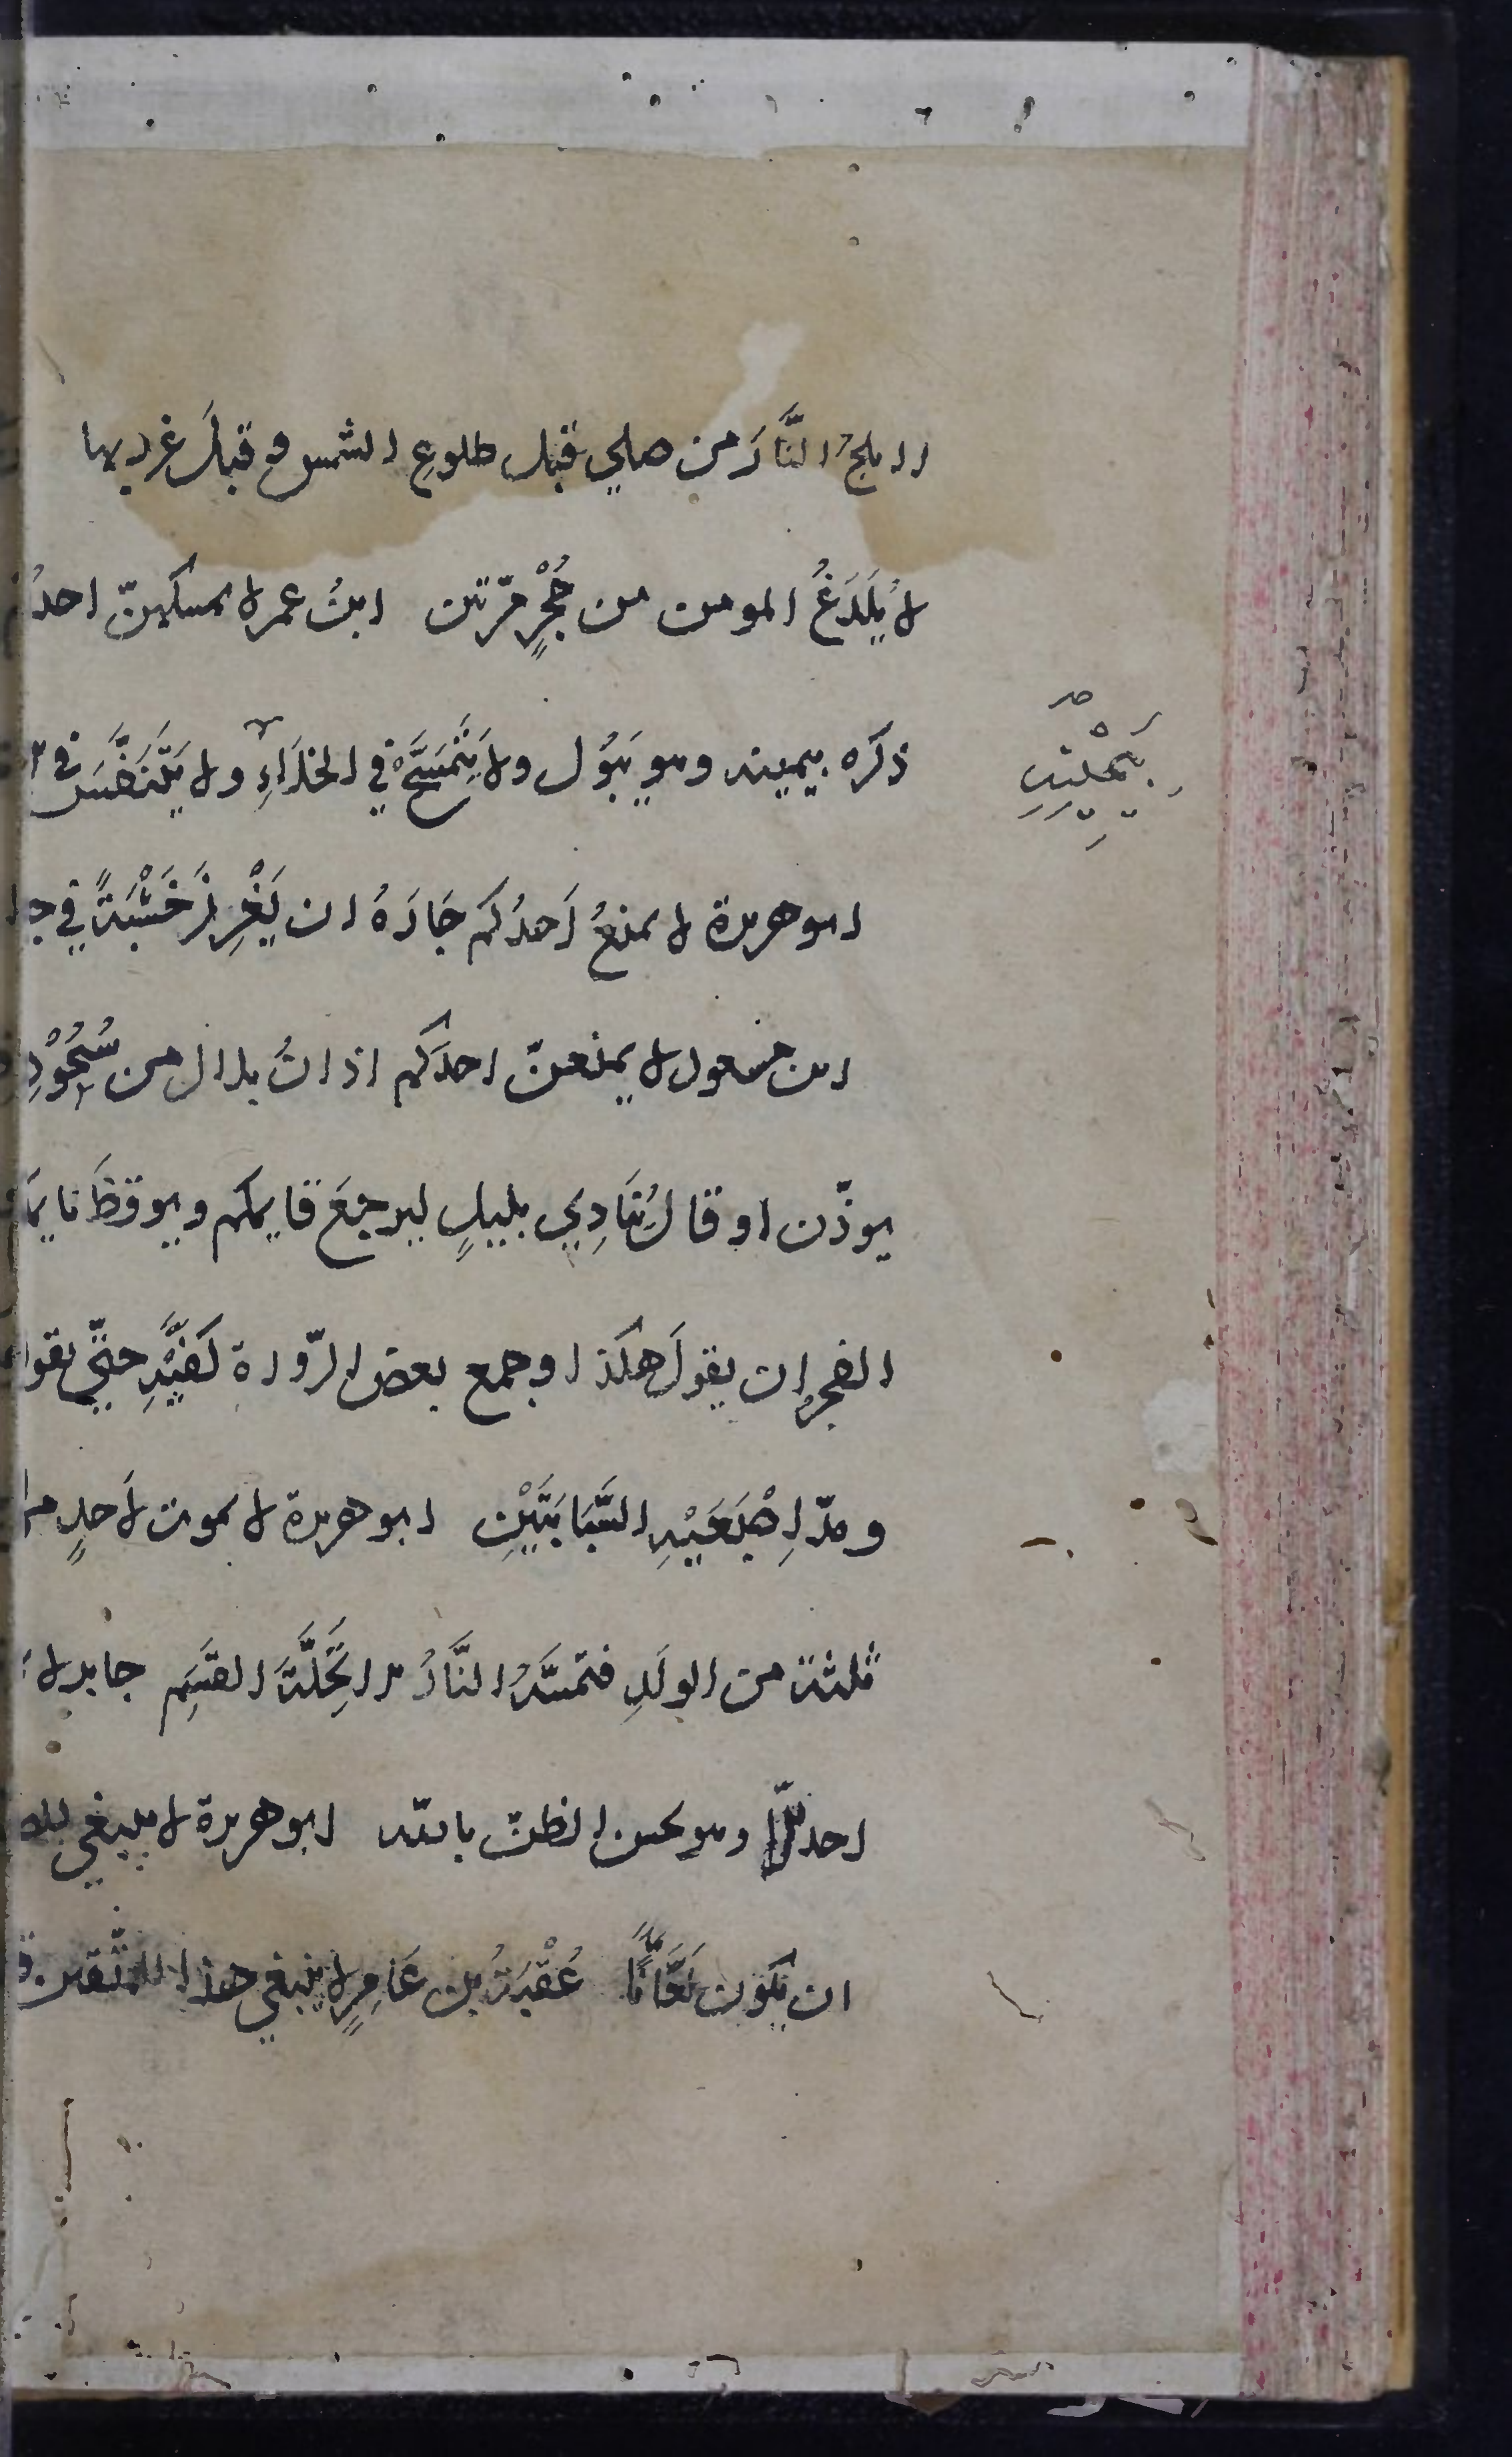 لا يلجُ النَّارَ من صلي قبل طلوعِ الشمس وقبلَ غروبها
لا يُلْدَغُ المومن من جُحْرٍ مرّتين ابنُ عمر لا يمسكنّ احدُكم
ذكَره بيمينه وهو يَبُول ولا يَتَمَسَّحْ في الخلَاءِ ولا يَتَنَفَّسَ في
بيمينِهِ
ابو هريرة لا يمنعُ اَحدُكم جَارَهُ ان يَغْرِزَ خَشْبَةً في
ابن مسعود لا يمنعنّ احدَكم اذانُ بلال من سُحُوْرِ
يوذّن او قال يُنَادِي بليلٍ ليرجعَ قايمكم ويوقظَ نايمَ
الفجر ان يقولَ هكذا وجمع بعض الرّواة كَفَّيْهِ حتّي يقول
ومدّ اِصْبَعَيْهِ السَّبَابَتَيْنِ ابو هريرة لا يموت لاَحدٍ
ثلثة من الولَدِ فتمسَّهُ النَّارُ الا تَحِلَّةَ القسَمِ جابر لا
احدكم الا وهو يحسن الظنّ بالله ابو هريرة لا ينبغي
ان يكون لَعَّانًا عُقْبَةُ بن عَامِرٍ لا ينبغي هذا للمتّقين